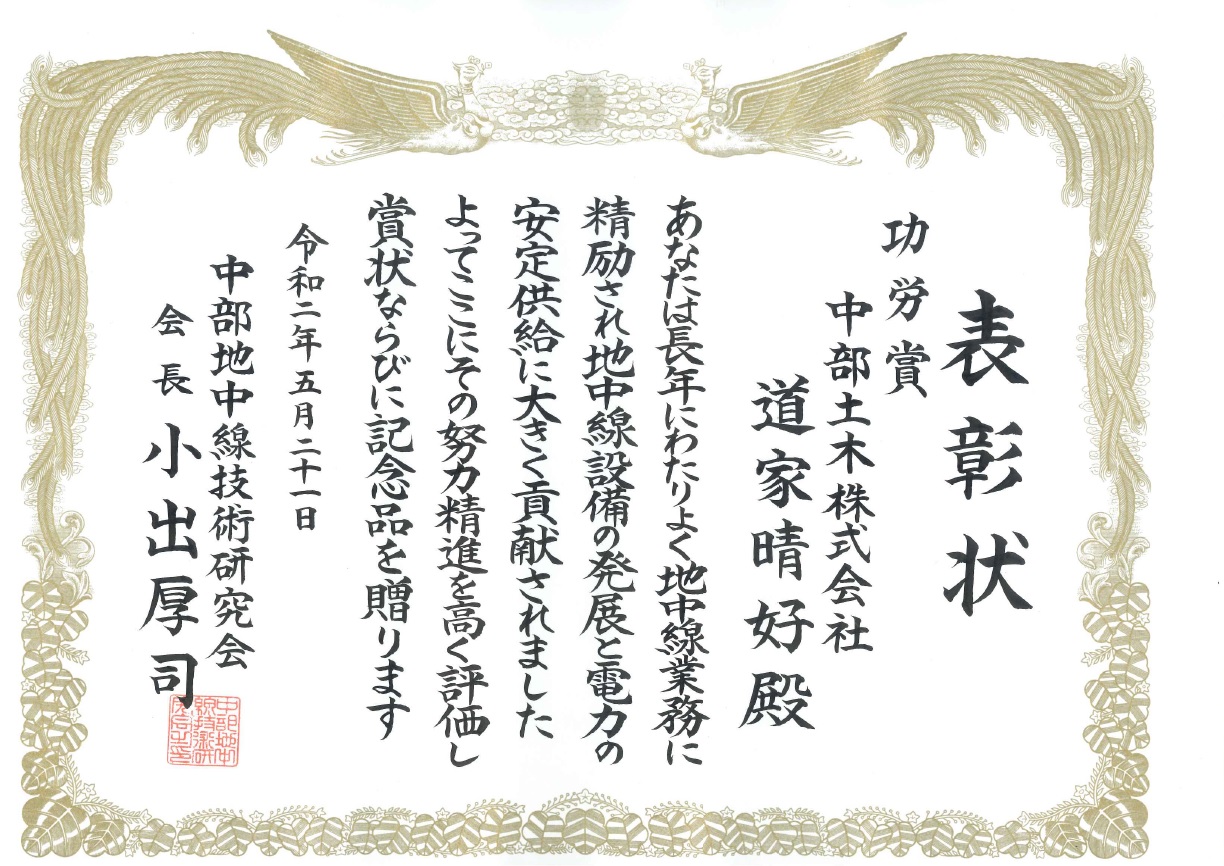 表彰状
功労賞
中部土木株式会社
道家晴好殿
あなたは長年にわたりよく地中線業務に
精励され地中線設備の発展と電力の
安定供給に大きく貢献されました
よってここにその努力精進を高く評価し
賞状ならびに記念品を贈ります
令和二年五月二十一日
中部地中線技術研究会
会長 小出厚司
中部地中
線技術研